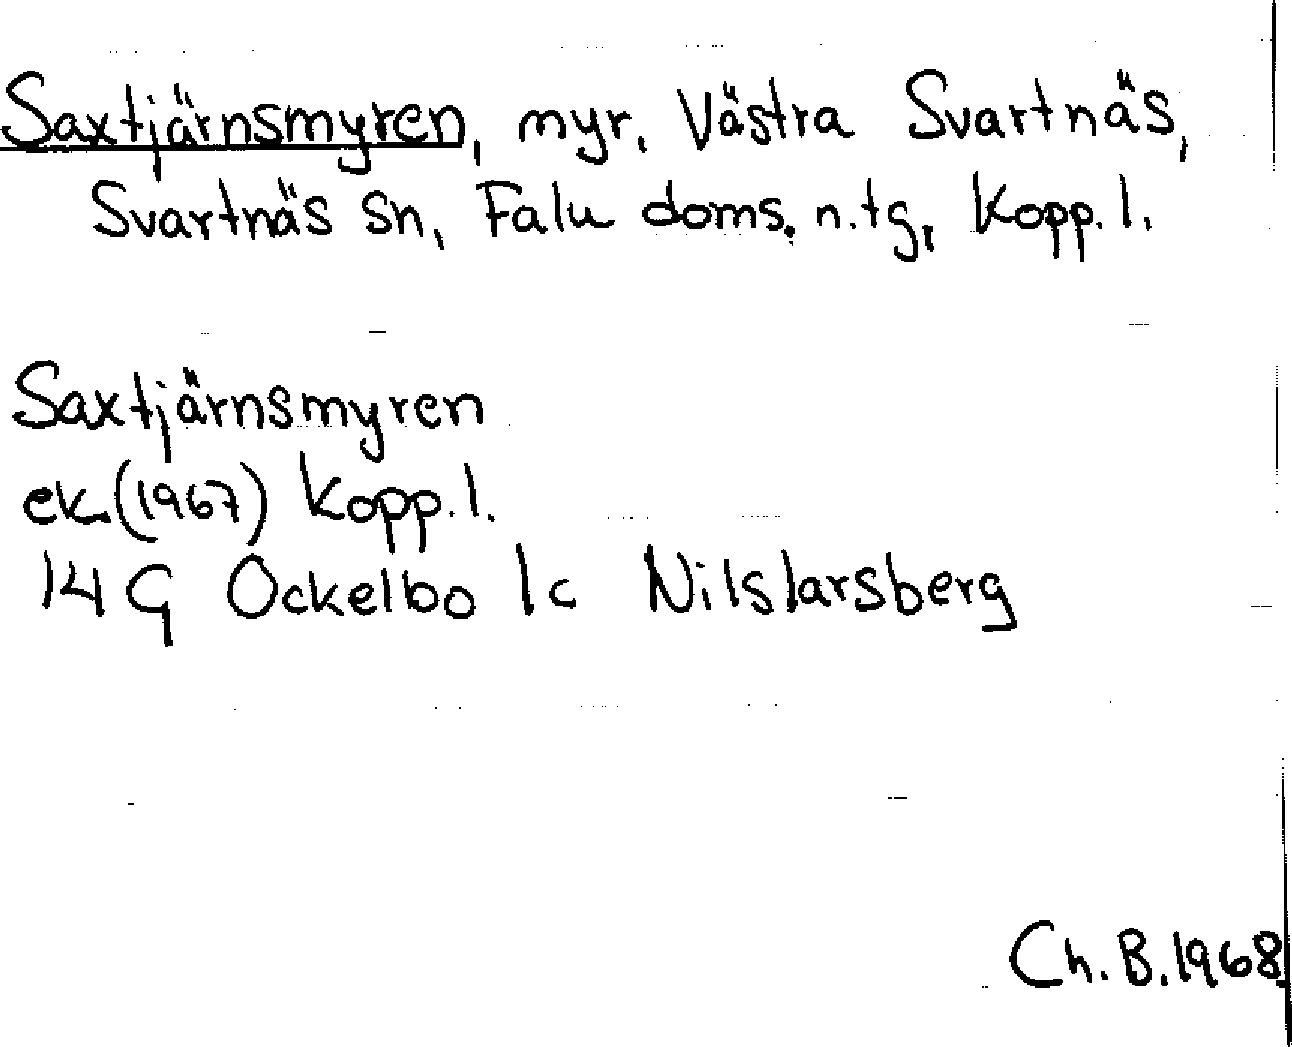 Saxtjärnsmyren, myr, Västra Svartnäs,
Svartnäs sn, Falu doms. n.tg, Kopp.l.
Saxtjärnsmyren
ek (1967) Kopp.l.
14 G Ockelbo 1c Nilslarsberg
Ch.B.1968